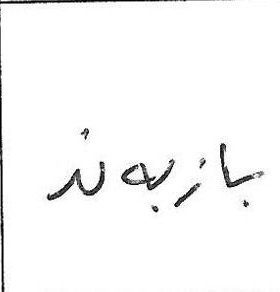 بازبهند